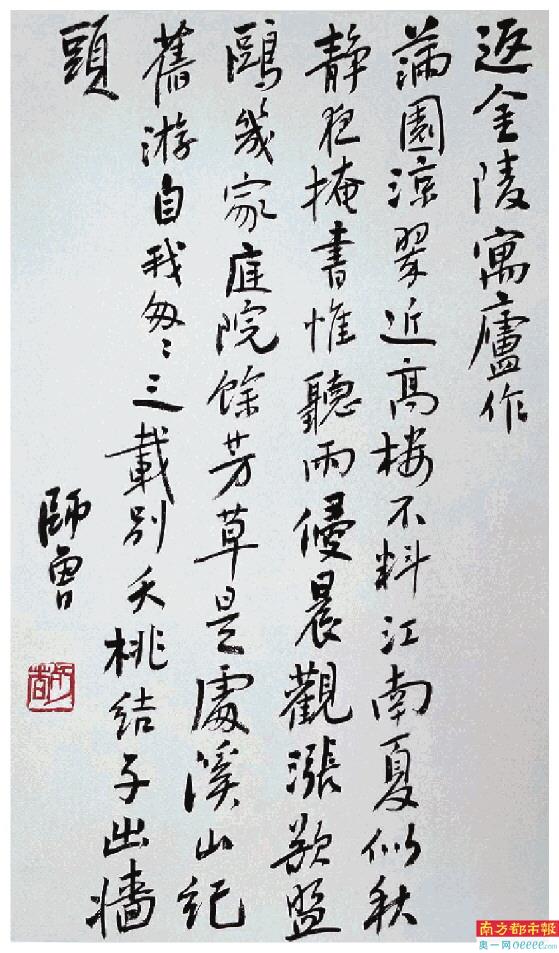 返金陵寓廬作
蒲園涼翠近高楼不料江南夏似秋
静夜掩書惟聽雨侵晨觀漲欲盟
鷗幾家庭院餘芳草是處溪山紀
舊游自我匆〻三載別夭桃結子出墻
頭
師曾
南方都市報
奥一网 oeeee.com